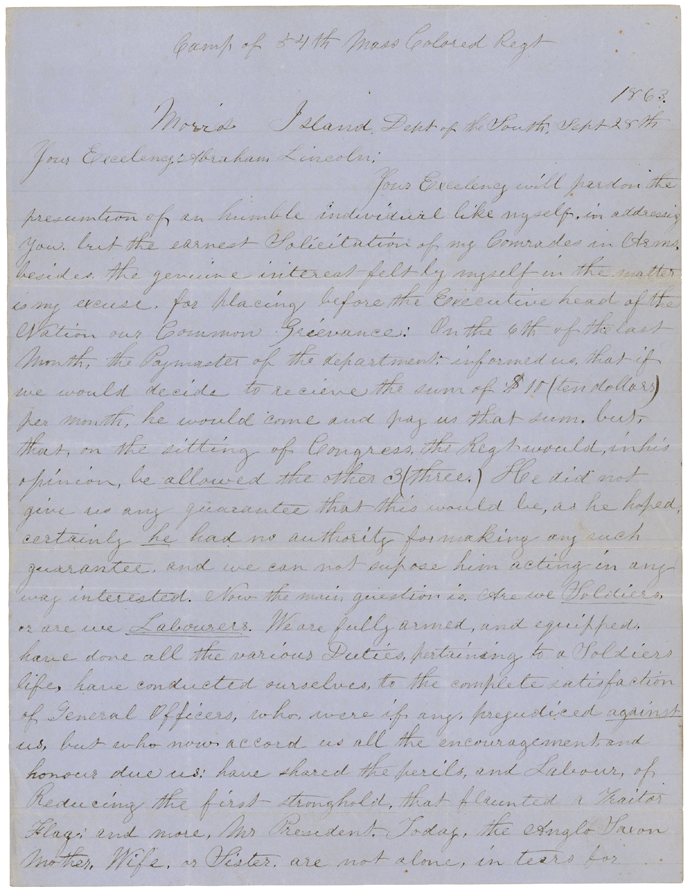 Camp of 54th Mass Colored Regt
1863.
Morris Island. Dept of the South. Sept 28th
Your Excelency: Abraham Lincoln:
Your Excelency will pardon the
presumtion of an humble individual like myself, in addressing
you. but the earnest Solicitation of my Comrades in Arms,
besides the genuine interest felt by myself in the matter
is my excuse, for placing before the Executive head of the
Nation our Common Grievance: On the 6th of the last
Month, the Paymaster of the department, informed us, that if
we would decide to recieve the sum of $10 (ten dollars)
per month, he would come and pay us that sum, but,
that, on the sitting of Congress, the Regt would, in his
opinion, be allowed the other 3 (three.) He did not
give us any guarantee that this would be, as he hoped,
certainly he had no authority for making any such
guarantee, and we can not supose him acting in any
way interested. Now the main question is, Are we Soldiers,
or are we Labourers. We are fully armed, and equipped,
have done all the various Duties, pertaining to a Soldiers
life, have conducted ourselves, to the complete satisfaction
of General Officers, who, were if any, prejudiced against
us, but who now accord us all the encouragement, and
honour due us: have shared the perils, and Labour, of
Reducing the first stronghold, that flaunted a Traitor
Flag: and more, Mr President. Today, the Anglo Saxon
Mother, Wife, or Sister, are not alone, in tears for